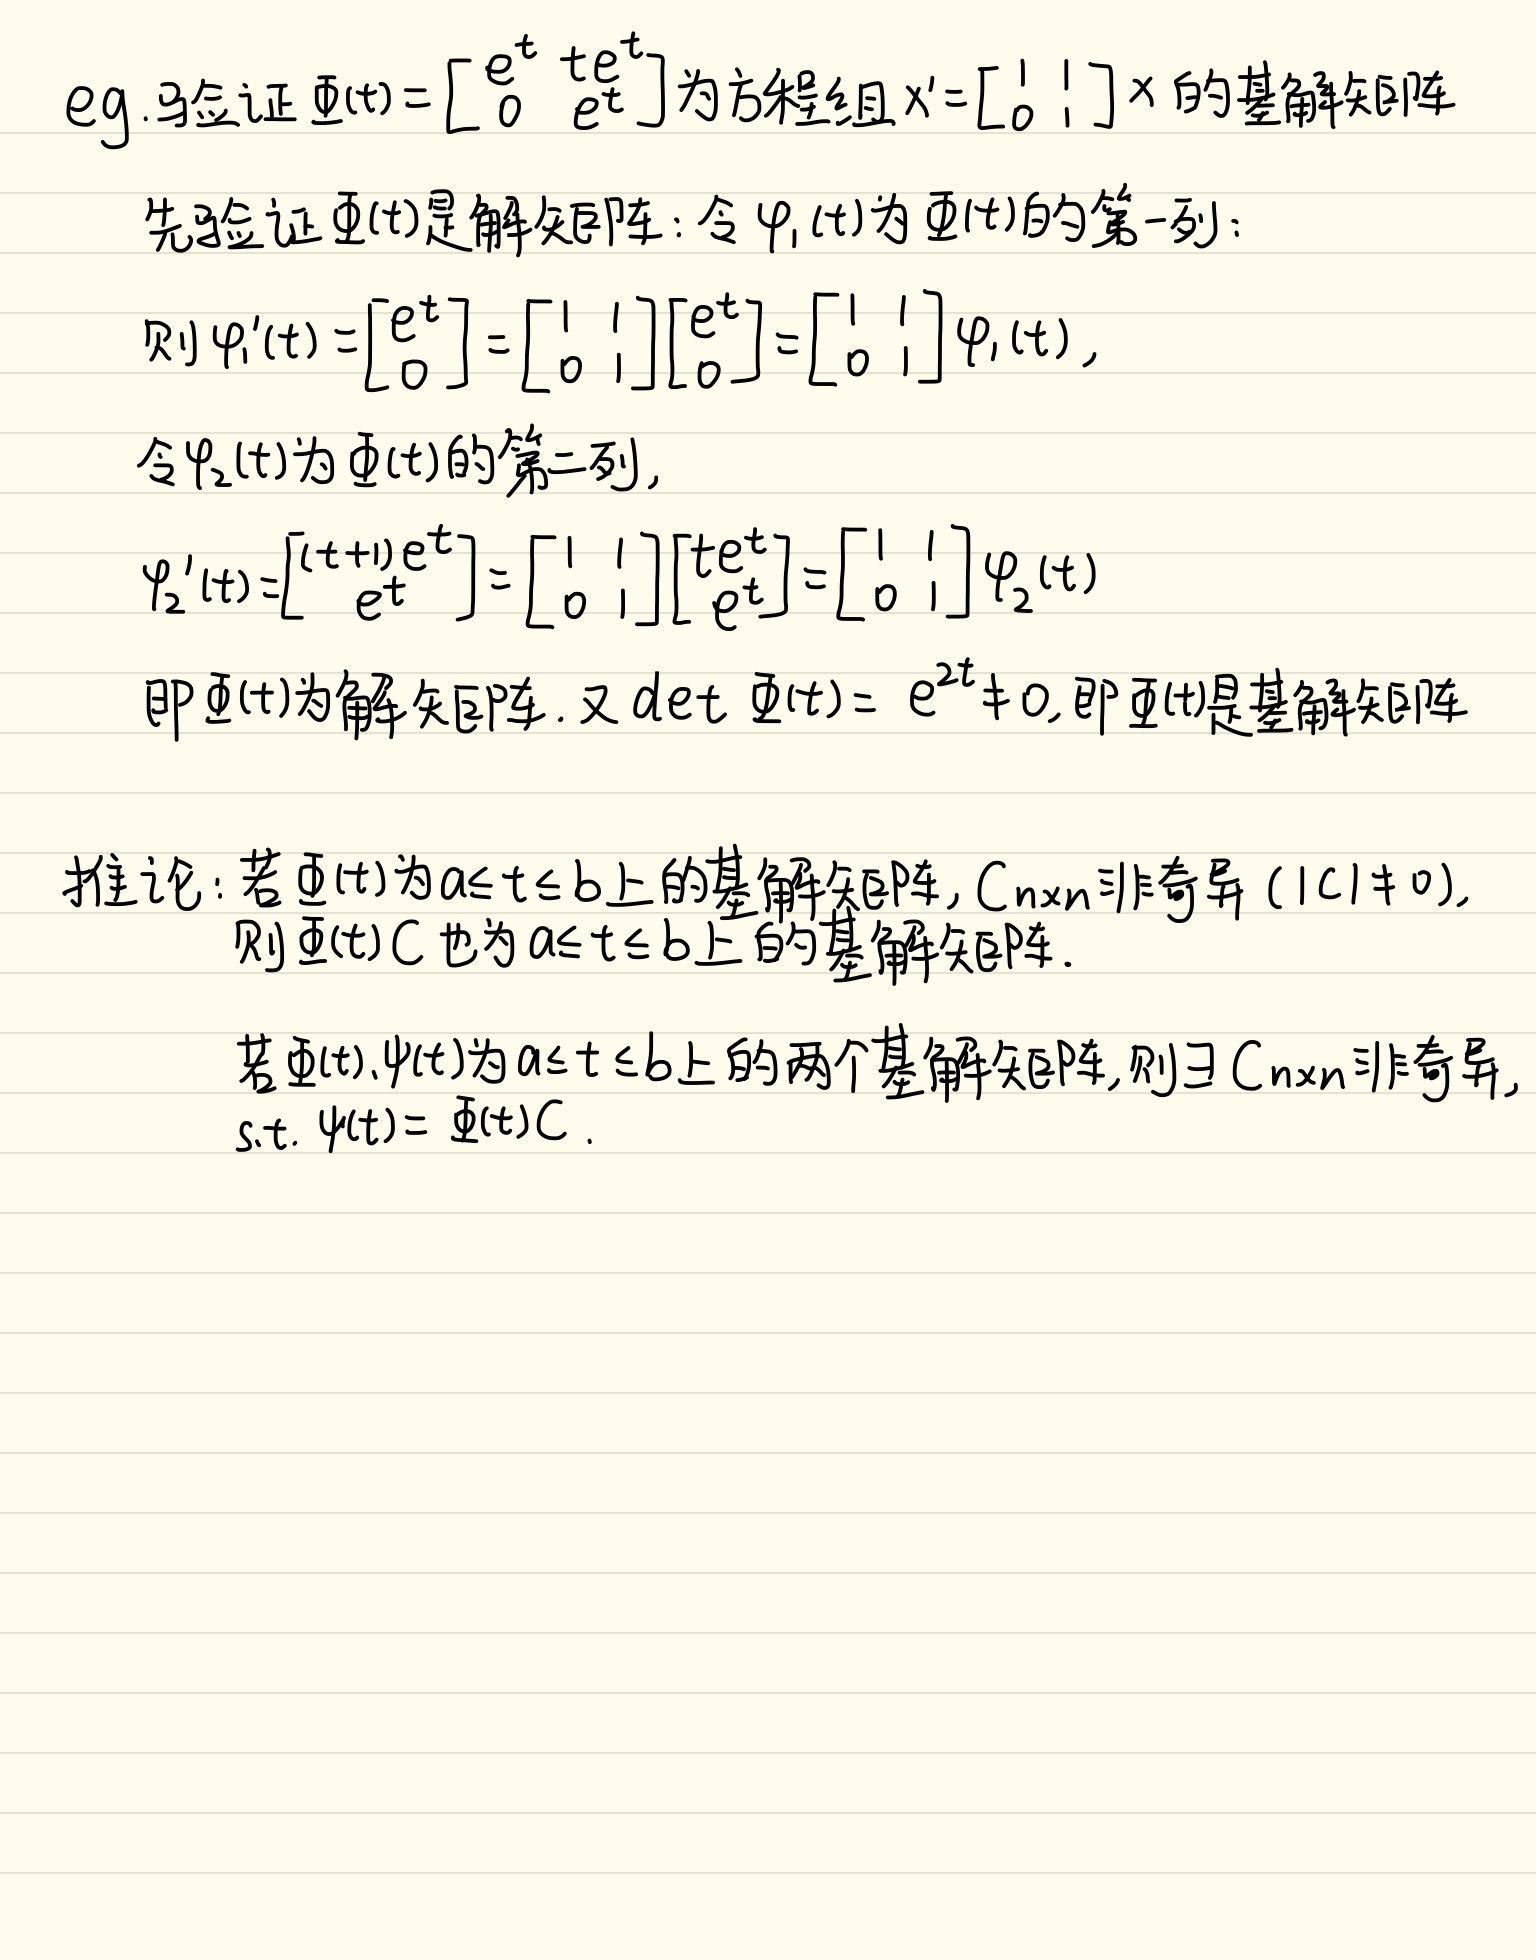 eg. 验证 Φ(t) = [e^t te^t; 0 e^t] 为方程组 x' = [1 1; 0 1] x 的基解矩阵
先验证 Φ(t) 是解矩阵: 令 φ₁(t) 为 Φ(t) 的第一列:
则 φ₁'(t) = [e^t; 0] = [1 1; 0 1][e^t; 0] = [1 1; 0 1] φ₁(t),
令 φ₂(t) 为 Φ(t) 的第二列,
φ₂'(t) = [(t+1)e^t; e^t] = [1 1; 0 1][te^t; e^t] = [1 1; 0 1] φ₂(t)
即 Φ(t) 为解矩阵. 又 det Φ(t) = e^{2t} ≠ 0, 即 Φ(t) 是基解矩阵
推论: 若 Φ(t) 为 a≤t≤b 上的基解矩阵, C_{n×n} 非奇异 (|C|≠0),
则 Φ(t)C 也为 a≤t≤b 上的基解矩阵.
若 Φ(t)、ψ(t) 为 a≤t≤b 上的两个基解矩阵, 则∃ C_{n×n} 非奇异,
s.t. ψ(t) = Φ(t)C.